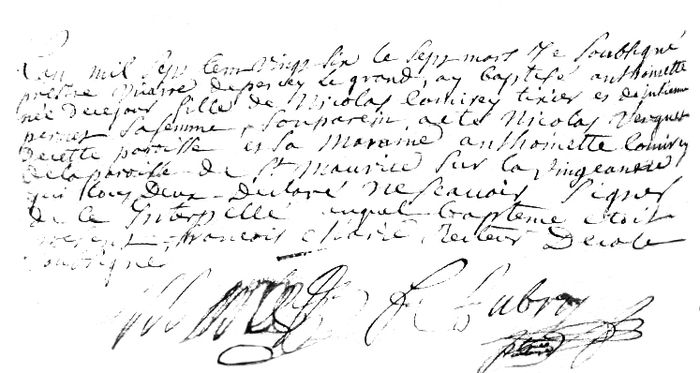 L'an mil sept cent vingt six le sept mars Je soubsigné
prestre vicaire de percey le grand, ay baptisé anthoinette
née de ce jour fille de Nicolas Comirey tixier et de
perret sa femme, son parein a eté Nicolas
de cette paroisse et sa maraine anthoinette Comirey
de la paroisse de St Maurice sur la vingeanne
qui tous deux declaré ne scavoir signer
de ce Interpellé auquel baptême étoit
present françois recteur decole
soubsigné